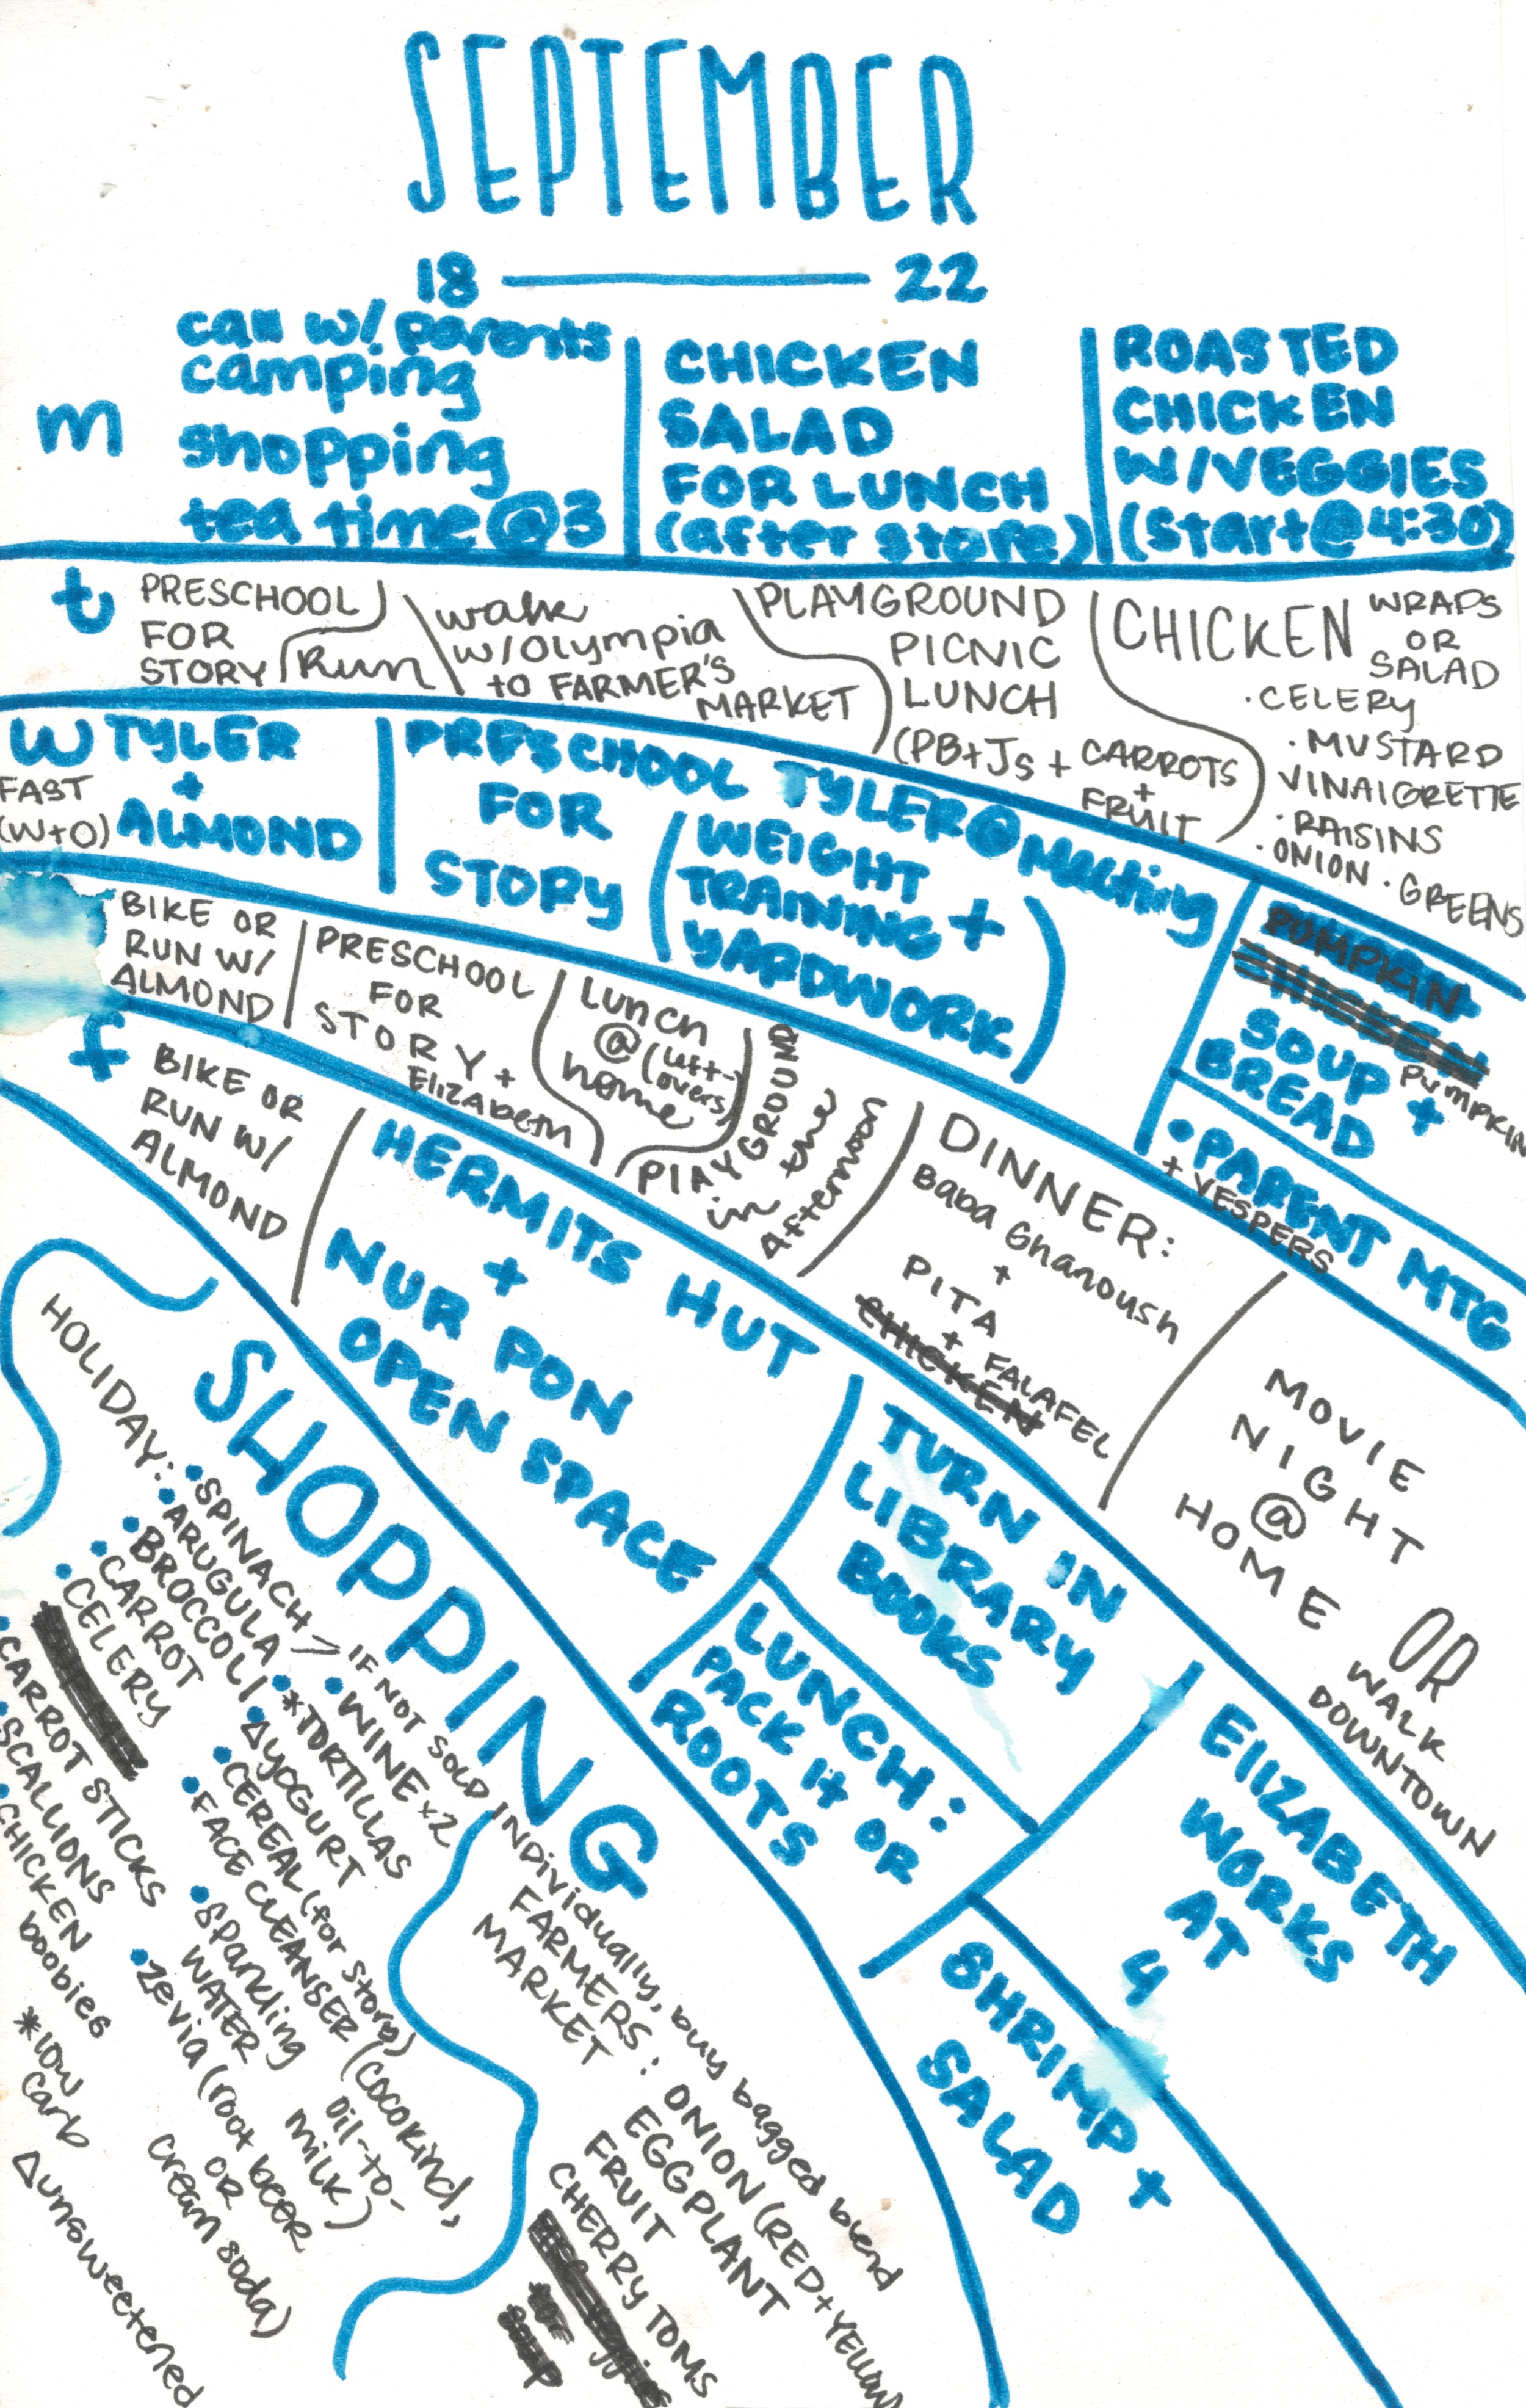 SEPTEMBER
18 — 22
m
call w/ parents
camping
shopping
tea time @ 3
CHICKEN
SALAD
FOR LUNCH
(after store)
ROASTED
CHICKEN
W/VEGGIES
(start@4:30)
t
PRESCHOOL
FOR
STORY
Run
walk
w/Olympia
to FARMER'S
MARKET
PLAYGROUND
PICNIC
LUNCH
(PB+Js + CARROTS
+
FRUIT
CHICKEN
WRAPS
OR
SALAD
·CELERY
·MUSTARD
VINAIGRETTE
·RAISINS
·ONION ·GREENS
W
FAST
(W+O)
TYLER
+
ALMOND
PRESCHOOL
FOR
STORY
TYLER@Meeting
(WEIGHT
TRAINING +
YARDWORK)
PUMPKIN
CHICKEN
SOUP +
BREAD
PUMPKIN
•PARENT MTG
+ VESPERS
BIKE OR
RUN W/
ALMOND
PRESCHOOL
FOR
STORY +
Elizabeth
Lunch
@
home
(left-
overs)
PlAYGROUND
in the
Afternoon
DINNER:
Baba Ghanoush
+
PITA
+ FALAFEL
CHICKEN
MOVIE
NIGHT
@
HOME
OR
WALK
DOWNTOWN
f
BIKE OR
RUN W/
ALMOND
HERMITS HUT
+
NUR PON
OPEN SPACE
TURN IN
LIBRARY
BOOKS
LUNCH:
PACK it OR
ROOTS
ElIZABETH
WORKS
AT
4
SHRIMP +
SALAD
SHOPPING
HOLIDAY:
•SPINACH
•ARUGULA
•BROCCOLI
•CARROT
•CELERY
IF NOT SOLD INDividually, buy bagged blend
•CARROT STICKS
•SCALLIONS
•CHICKEN
boobies
•WINE x2
•*TORTILLAS
•△YOGURT
•CEREAL (for story)
•FACE CLEANSER (cocokind,
oil-to-
milk)
•Sparkling
WATER
•Zevia (root beer
OR
cream soda)
*low
carb
△unsweetened
FARMERS
MARKET
: ONION (RED+YEllow
EGGPLANT
FRUIT
CHERRY TOMS
for
soup